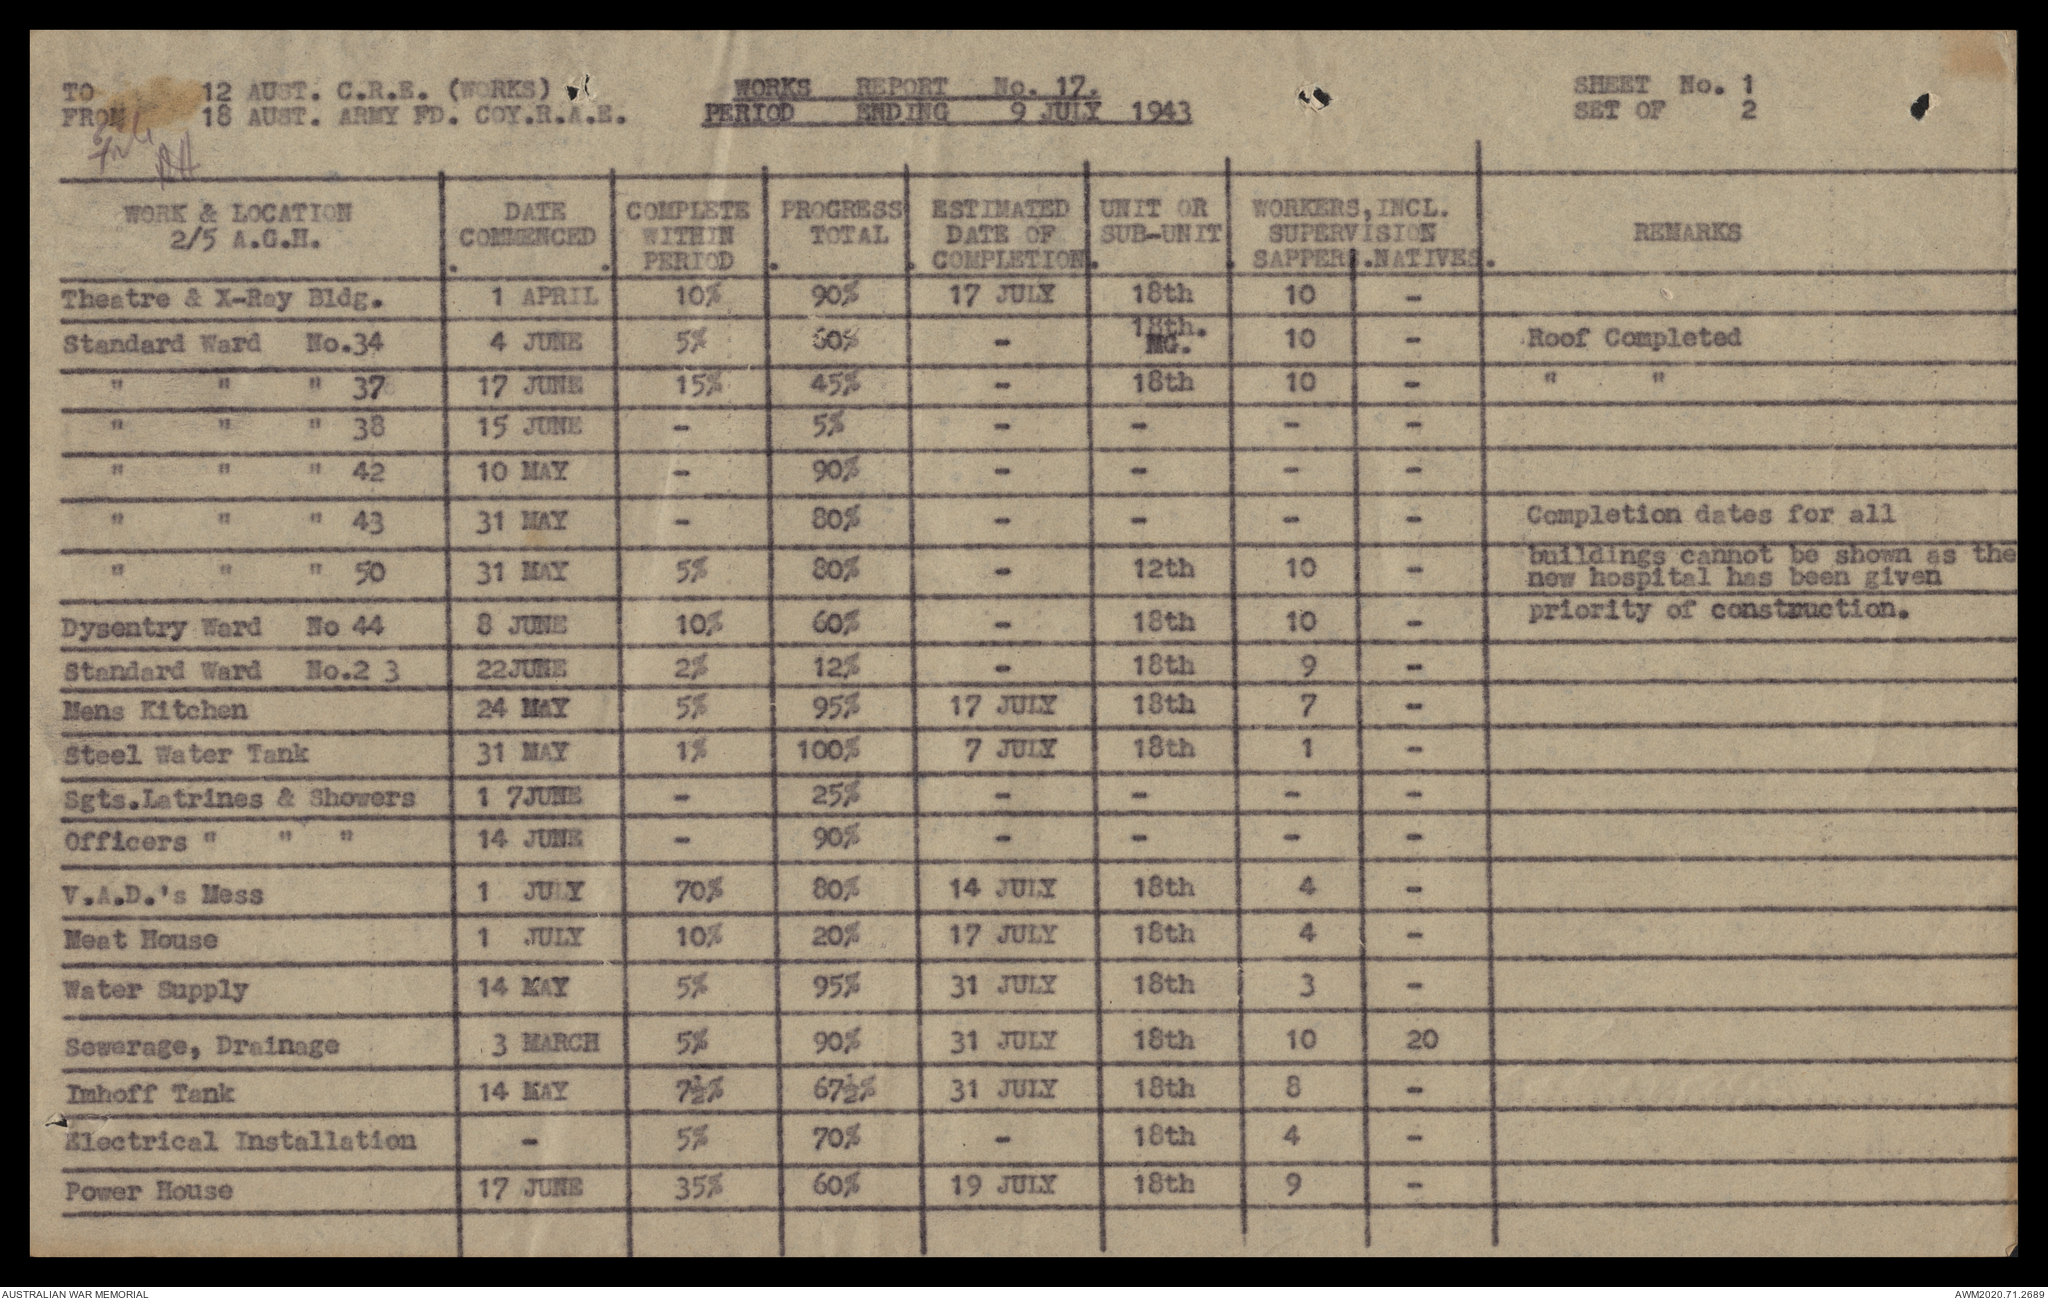 TO 12 AUST. C.R.E. (WORKS) WORKS REPORT No. 17. SHEET No. 1
FROM 18 AUST. ARMY FD. COY.R.A.E. PERIOD ENDING 9 JULY 1943 SET OF 2
WORK & LOCATION DATE COMPLETE PROGRESS ESTIMATED UNIT OR WORKERS, INCL.
2/5 A.G.H. COMMENCED WITHIN TOTAL DATE OF SUB-UNIT SUPERVISION REMARKS
PERIOD COMPLETION SAPPERS. NATIVES.
Theatre & X-Ray Bldg. 1 APRIL 10% 90% 17 JULY 18th 10 -
Standard Ward No.34 4 JUNE 5% 60% - 18th. MG. 10 - Roof Completed
" " " 37 17 JUNE 15% 45% - 18th 10 - " "
" " " 38 15 JUNE - 5% - - - -
" " " 42 10 MAY - 90% - - - -
" " " 43 31 MAY - 80% - - - - Completion dates for all
buildings cannot be shown as the
" " " 50 31 MAY 5% 80% - 12th 10 - new hospital has been given
priority of construction.
Dysentry Ward No 44 8 JUNE 10% 60% - 18th 10 -
Standard Ward No.2 3 22JUNE 2% 12% - 18th 9 -
Mens Kitchen 24 MAY 5% 95% 17 JULY 18th 7 -
Steel Water Tank 31 MAY 1% 100% 7 JULY 18th 1 -
Sgts.Latrines & Showers 1 7JUNE - 25% - - - -
Officers " " " 14 JUNE - 90% - - - -
V.A.D.'s Mess 1 JULY 70% 80% 14 JULY 18th 4 -
Meat House 1 JULY 10% 20% 17 JULY 18th 4 -
Water Supply 14 MAY 5% 95% 31 JULY 18th 3 -
Sewerage, Drainage 3 MARCH 5% 90% 31 JULY 18th 10 20
Imhoff Tank 14 MAY 7½% 67½% 31 JULY 18th 8 -
Electrical Installation - 5% 70% - 18th 4 -
Power House 17 JUNE 35% 60% 19 JULY 18th 9 -
AUSTRALIAN WAR MEMORIAL AWM2020.71.2689